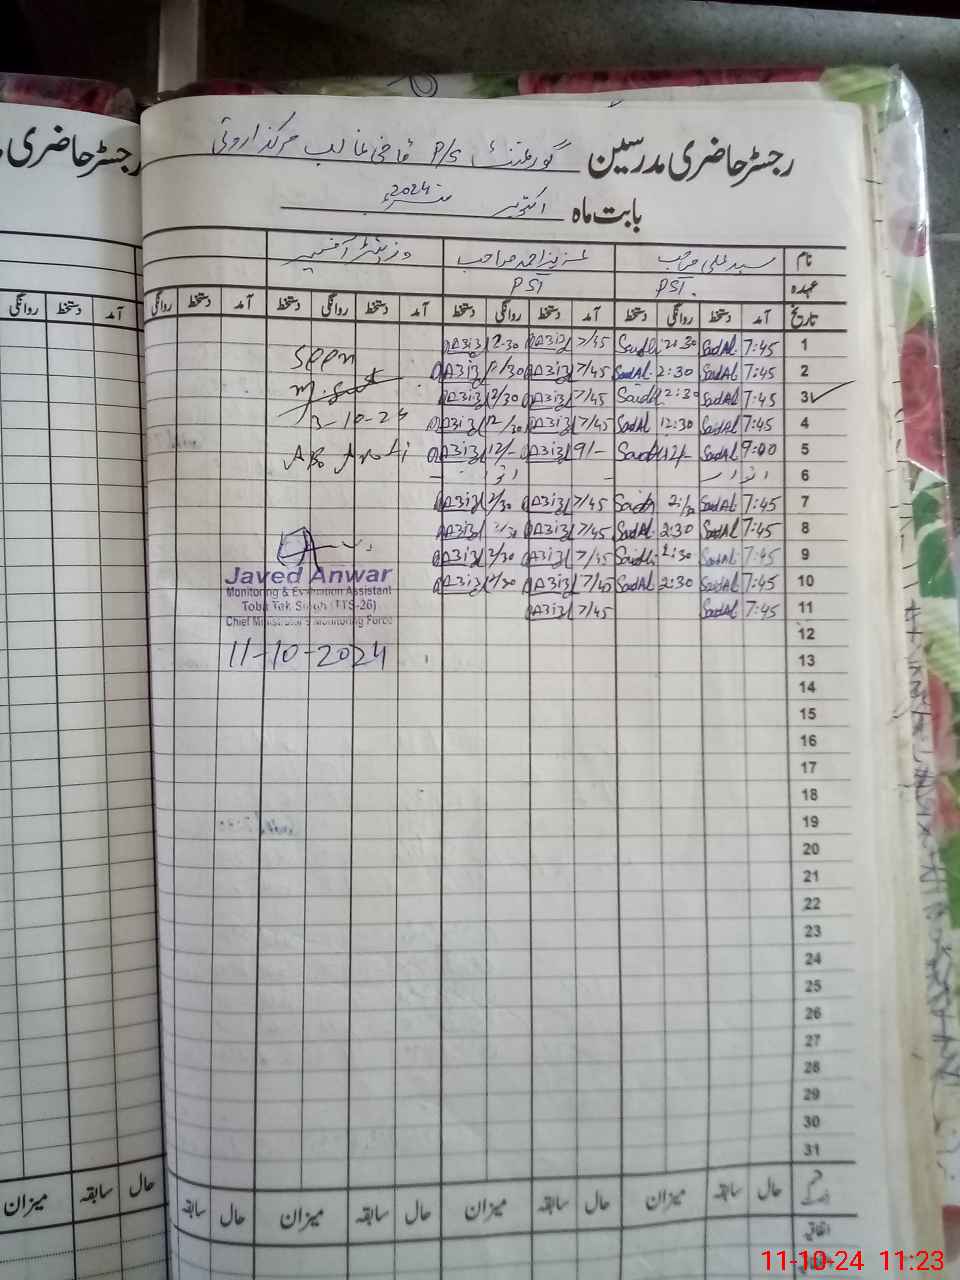 رجسٹر حاضری مدرسین گورنمنٹ P/S قاضی غالب مرکز اروتی
بابت ماہ اکتوبر 2024ء
نام سید علی صاحب عزیز احمد صاحب وزٹنگ آفیسر
عہدہ PST. PST
تاریخ آمد دستخط روانگی دستخط آمد دستخط روانگی دستخط آمد روانگی دستخط آمد دستخط روانگی
1 7:45 SadAl 2:30 7/45 2:30
2 7:45 SadAl 2:30 SadAl 7/45 2/30
3 7:45 SadAl 2:30 7/45 2/30
4 7:45 SadAl 12:30 SadAl 7/45 12/30
5 9:00 SadAl 12/- 9/- 12/-
6 اتوار اتوار
7 7:45 SadAl 2:30 7/45 2/30
8 7:45 SadAl 2:30 SadAl 7/45 2/30
9 7:45 SadAl 2:30 7/45 2/30
10 7:45 SadAl 2:30 SadAl 7/45 2/30
11 7:45 SadAl 7/45
12
13
14
15
16
17
18
19
20
21
22
23
24
25
26
27
28
29
30
31
Seen
3-10-24
Javed Anwar
Monitoring & Evaluation Assistant
Toba Tek Singh (TTS-26)
Chief Minister's Monitoring Force
11-10-2024
حال سابقہ میزان حال سابقہ میزان حال سابقہ میزان حال سابقہ
اتفاقیہ
رجسٹر حاضری
آمد دستخط روانگی
حال سابقہ میزان
11-10-24 11:23